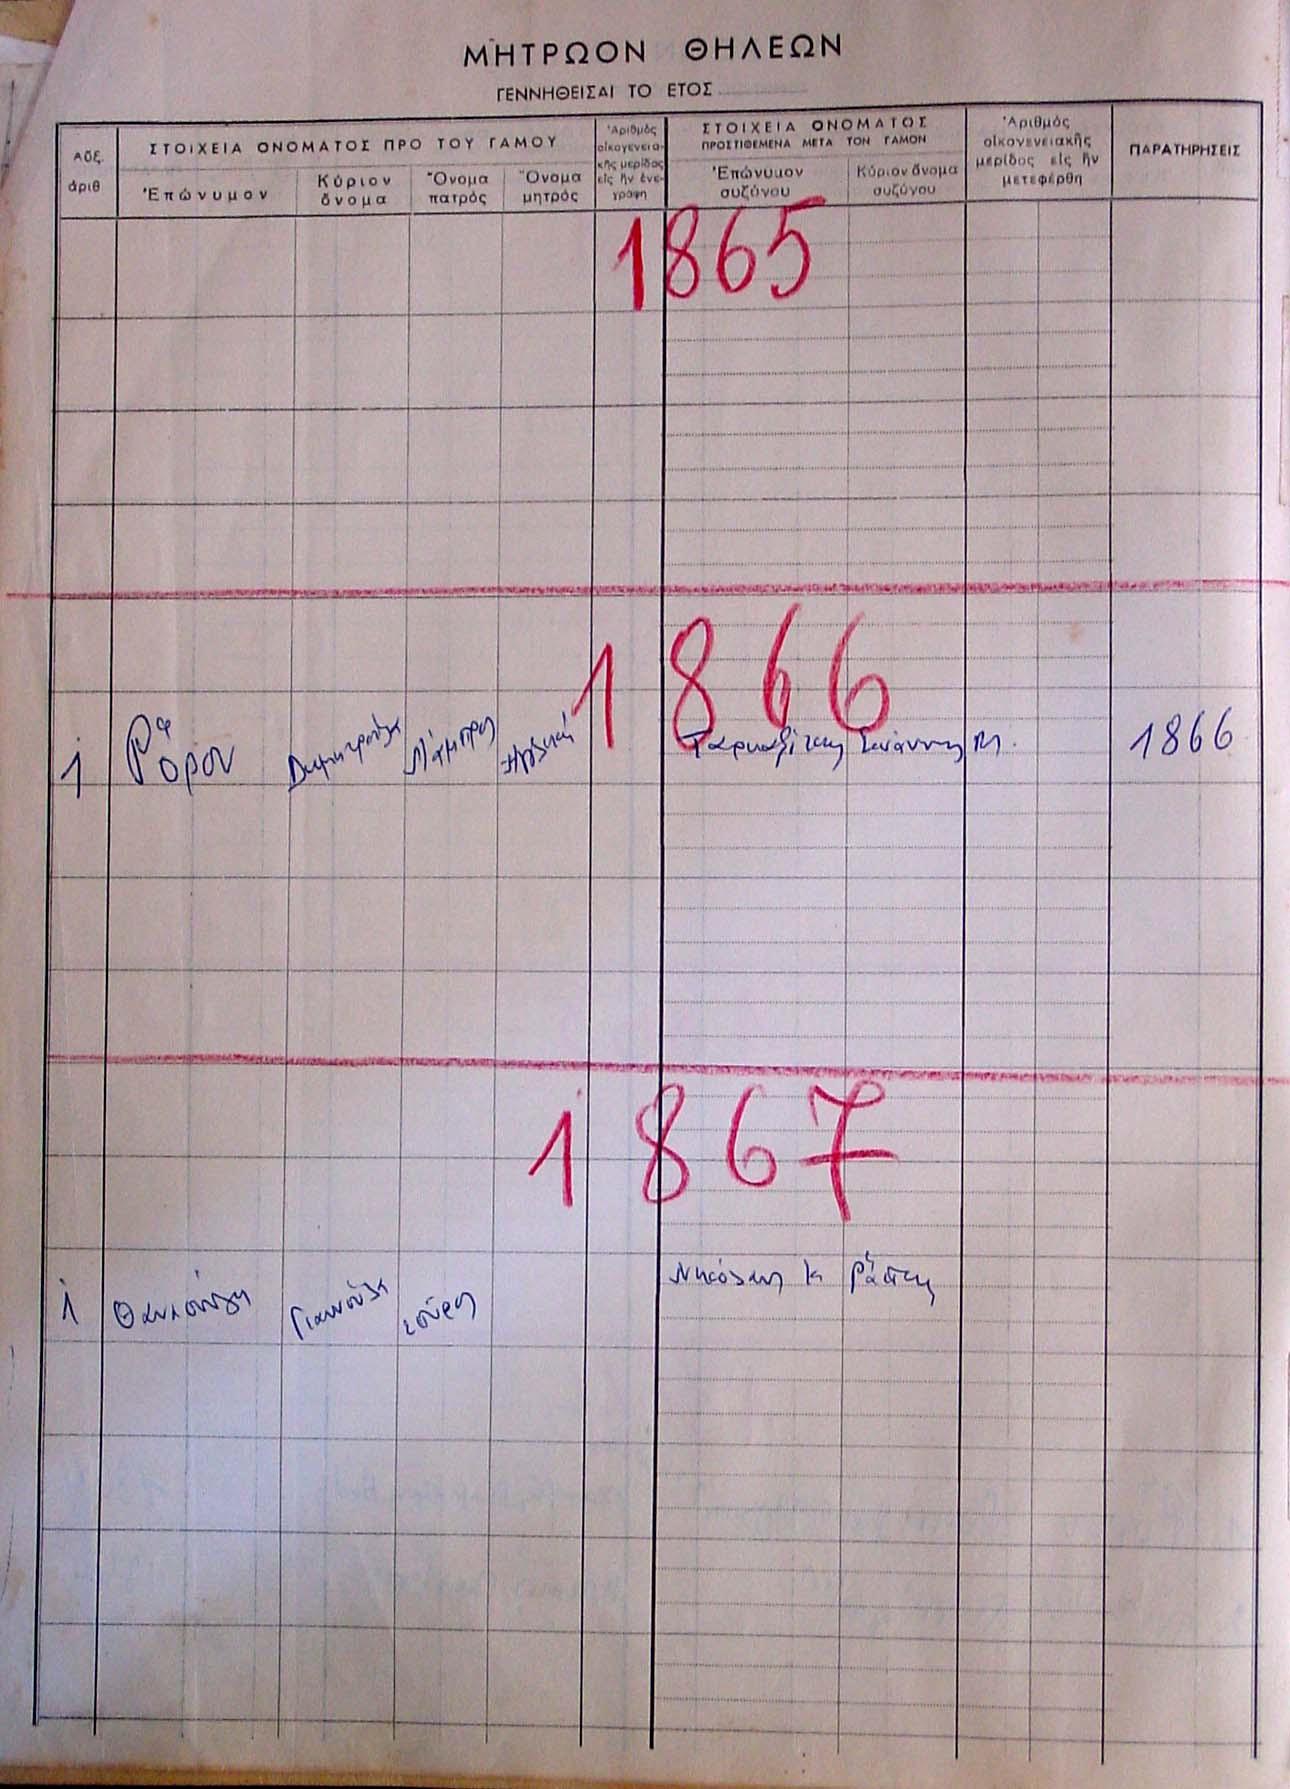 ΜΗΤΡΩΟΝ ΘΗΛΕΩΝ
ΓΕΝΝΗΘΕΙΣΑΙ ΤΟ ΕΤΟΣ
Αὔξ. ἀριθ
ΣΤΟΙΧΕΙΑ ΟΝΟΜΑΤΟΣ ΠΡΟ ΤΟΥ ΓΑΜΟΥ
Ἐπώνυμον
Κύριον ὄνομα
Ὄνομα πατρός
Ὄνομα μητρός
Ἀριθμὸς οἰκογενειακῆς μερίδος εἰς ἣν ἐνεγράφη
ΣΤΟΙΧΕΙΑ ΟΝΟΜΑΤΟΣ
ΠΡΟΣΤΙΘΕΜΕΝΑ ΜΕΤΑ ΤΟΝ ΓΑΜΟΝ
Ἐπώνυμον συζύγου
Κύριον ὄνομα συζύγου
Ἀριθμὸς οἰκογενειακῆς μερίδος εἰς ἣν μετεφέρθη
ΠΑΡΑΤΗΡΗΣΕΙΣ
1865
1866
1 Δημητρούλα Λάμπρος 1866
1867
1 Γιαννούλα Νικόλαος Κ